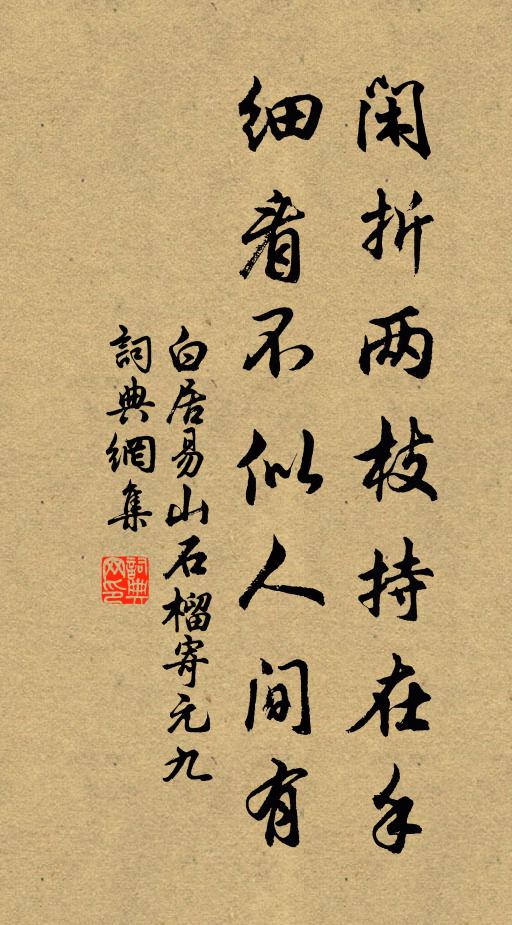 闲折两枝持在手
细看不似人间有
白居易山石榴寄元九
詞典網集
詞典網印